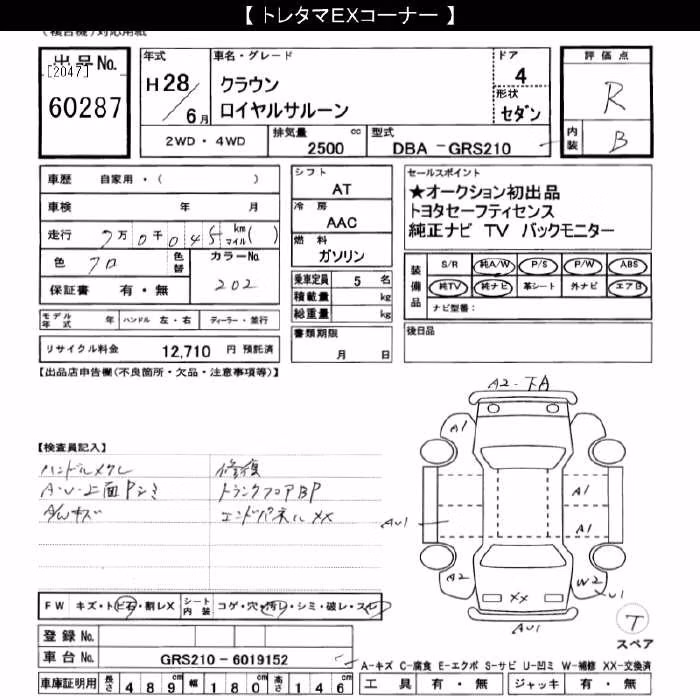 【 トレタマEXコーナー 】
(複合機)対応用紙
出品No.
[2047]
60287
年式
H28/6月
車名・グレード
クラウン
ロイヤルサルーン
ドア
4
形状
セダン
評価点
R
内装
B
2WD・4WD
排気量
2500
cc
型式
DBA -GRS210
車歴 自家用・( )
車検 年 月
走行 7万0千045 km マイル( )
色 クロ
色替
カラーNo
202
保証書 有・無
シフト
AT
冷房
AAC
燃料
ガソリン
乗車定員 5 名
積載量 kg
総重量 kg
書類期限
月 日
セールスポイント
★オークション初出品
トヨタセーフティセンス
純正ナビ TV バックモニター
装備品
S/R 純A/W P/S P/W ABS
純TV 純ナビ 革シート 外ナビ エアB
ナビ型番:
後日品
モデル年式 年 ハンドル 左・右 ディーラー・並行
リサイクル料金 12,710 円 預託済
【出品店申告欄(不良箇所・欠品・注意事項等)】
【検査員記入】
ハンドルスレ
修復
A・U・上面Pシミ
トランクフロアBP
A/Wキズ
エンドパネルXX
A2-下A
A1
A1
A1
AU1
A2
W2
U1
XX
AU1
T
スペア
FW キズ・トビ石・割レX
シート内装 コゲ・穴・汚レ・シミ・破レ・スレ
登録No.
車台No. GRS210-6019152
A-キズ C-腐食 E-エクボ S-サビ U-凹ミ W-補修 XX-交換済
車庫証明用 長さ 489 cm 幅 180 cm 高さ 146 cm
工具 有・無 ジャッキ 有・無